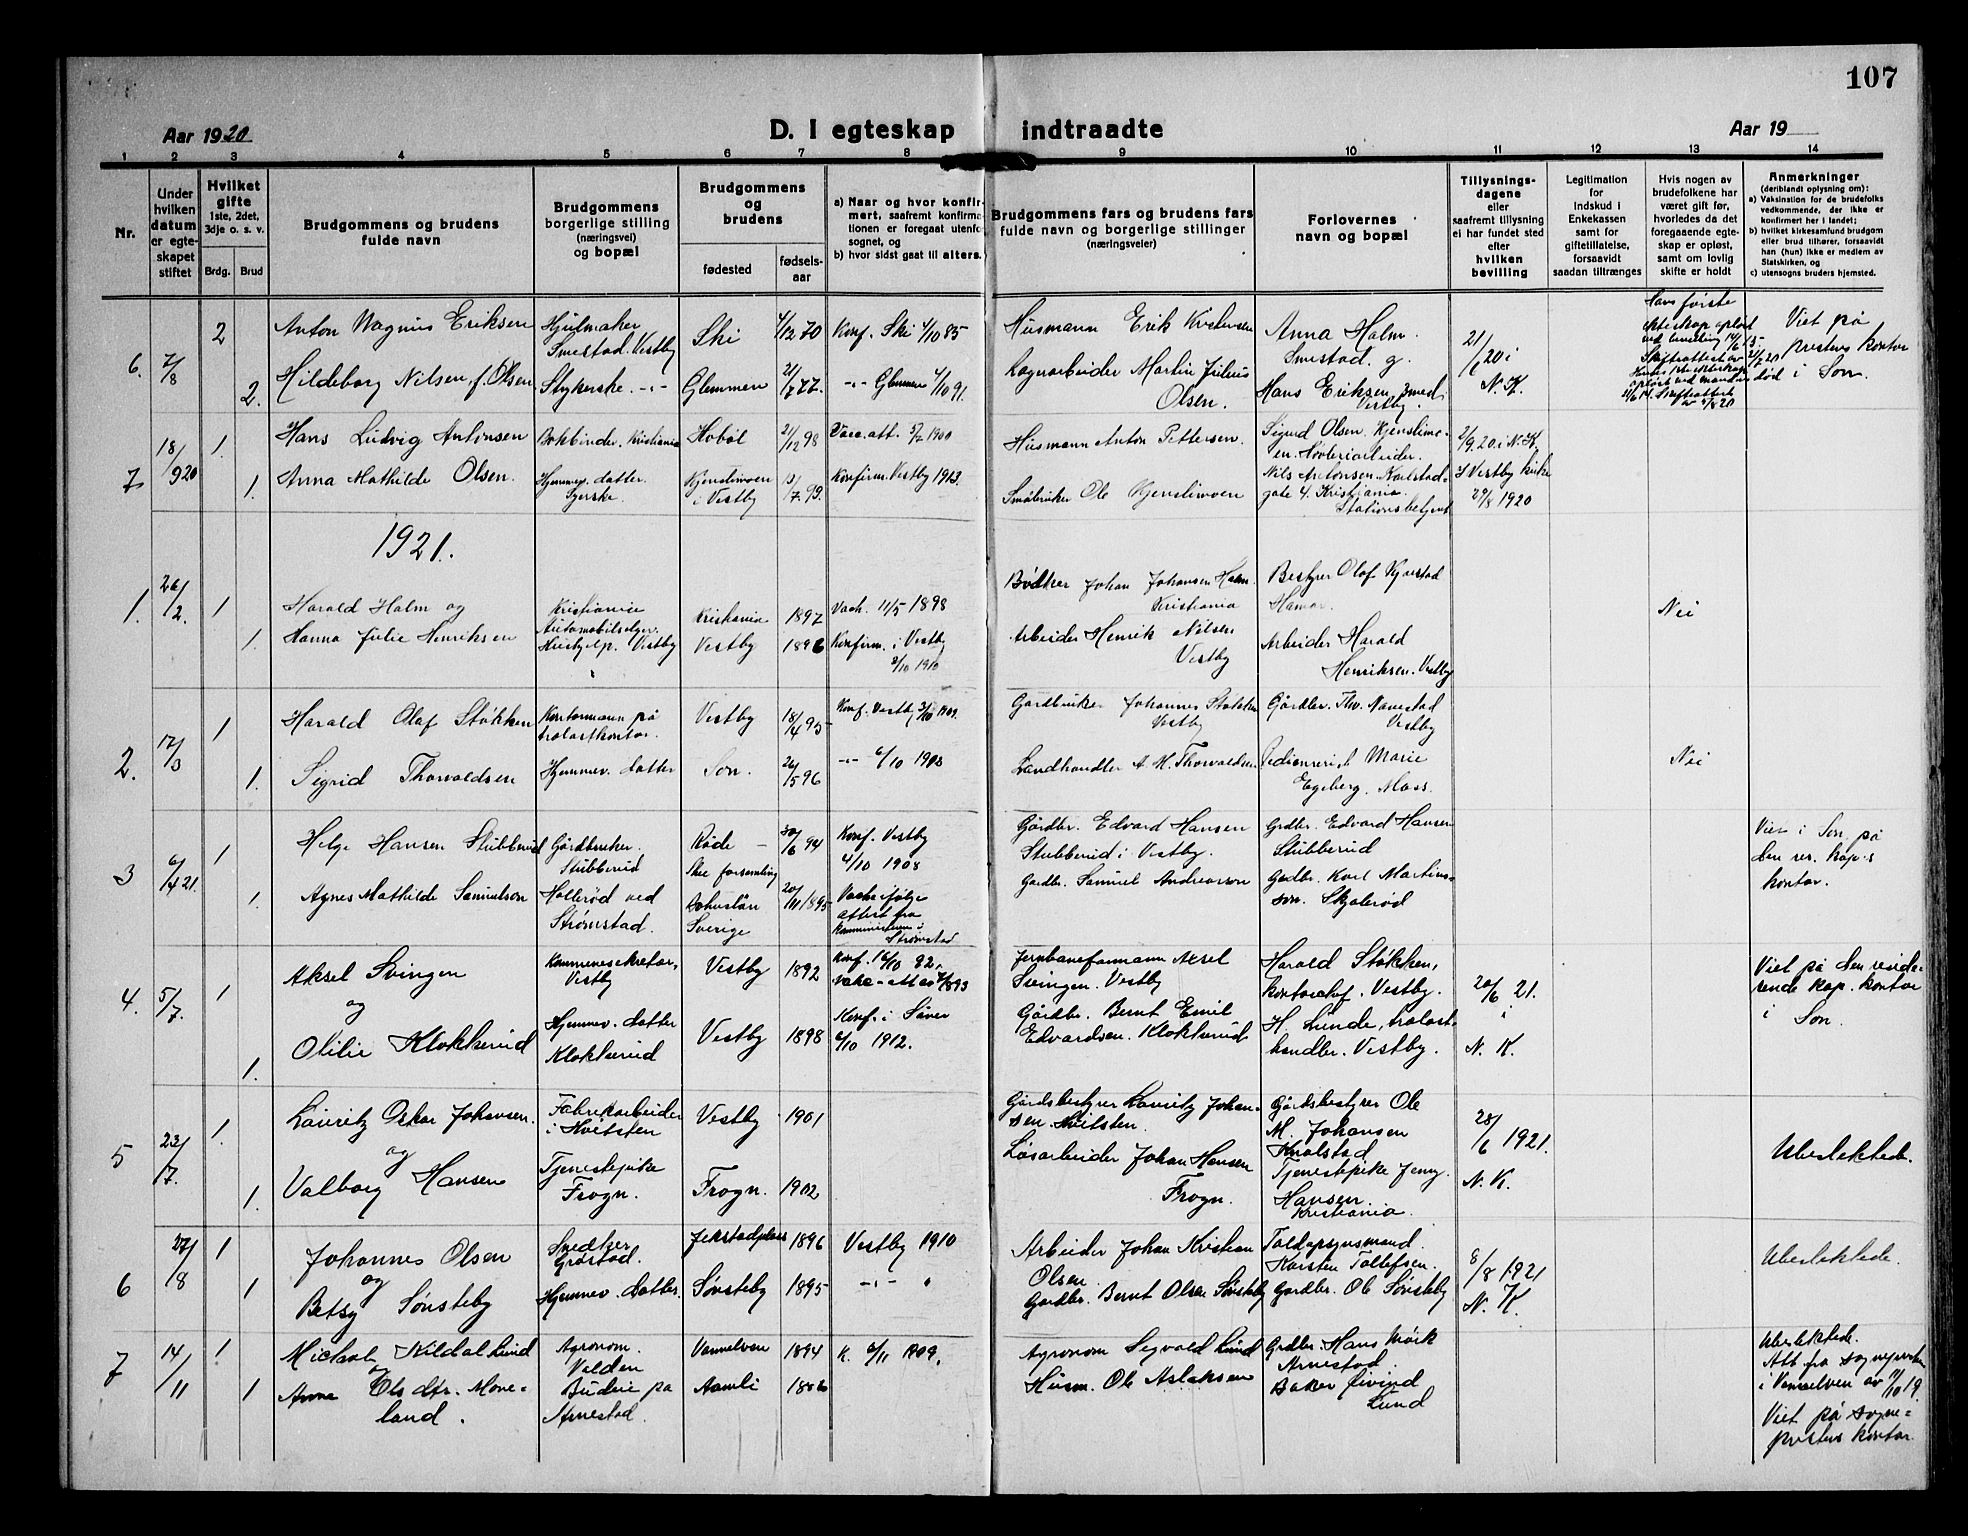 107
Aar 1920
D. I egteskap indtraadte
Aar 19
1 2 3 4 5 6 7 8 9 10 11 12 13 14
Nr.
Under
hvilken
datum
er egte-
skapet
stiftet
Hvilket
gifte
1ste, 2det,
3dje o. s. v.
Brdg. Brud
Brudgommens og brudens
fulde navn
Brudgommens
borgerlige stilling
(næringsvei)
og bopæl
Brudgommens
og
brudens
fødested
fødsels-
aar
a) Naar og hvor konfir-
mert, saafremt konfirma-
tionen er foregaat utenfor
sognet, og
b) hvor sidst gaat til alters.
Brudgommens fars og brudens fars
fulde navn og borgerlige stillinger
(næringsveier)
Forlovernes
navn og bopæl
Tillysnings-
dagene
eller
saafremt tillysning
ei har fundet sted
efter
hvilken
bevilling
Legitimation
for
Indskud i
Enkekassen
samt for
giftetillatelse,
forsaavidt
saadan tiltrænges
Hvis nogen av
brudefolkene har
været gift før,
hvorledes da det
foregaaende egte-
skap er opløst,
samt om lovlig
skifte er holdt
Anmerkninger
(deriblandt oplysning om):
a) Vaksination for de brudefolks
vedkommende, der ikke er
konfirmert her i landet;
b) hvilket kirkesamfund brudgom
eller brud tilhører, forsaavidt
han (hun) ikke er medlem av
Statskirken, og
c) utensogns bruders hjemsted.
6. 7/8 2 Anton Magnus Eriksen
Hjulmaker
Smestad. Vestby
Ski 4/12 70 Konf. Ski 4/10 85
Husmann Erik Kristensen
Anna Halm
Smestad. g.
2. Hildeborg Nilsen f. Olsen
Sykerske. -"-
Glemmen 21/7 77 -"- Glemmen 4/10 91.
Løgnarbeider Martin Julius
Olsen.
Hans Eriksen smed.
Vestby.
21/6 20 i
N. K.
Hans første
Viet på
prestens kontor
i Son.
7 18/9 20 1. Hans Ludvig Antonsen
Bokbinder. Kristiania
Hobøl 21/12 98 Vacc. att. 5/2 1900
Husmann Anton Pettersen.
Sigurd Olsen. Kjenslimo-
en. Høvleriarbeider.
2/9. 20. i N. K.
1. Anna Mathilde Olsen.
Hjemmev. datter.
Syerske.
Kjenslimoen
i Vestby
13/7 99. Konfirm. Vestby 1913.
Småbruker Ole Kjenslimoen
Nils Antonsen. Karlstad-
gate 4. Kristiania.
Stationsbetjent
I Vestby kirke
29/8 1920
1921.
1. 26/2. 1 Harald Halm og
Kristiania
Automobilselger.
Kristiania 1897 Vach. 11/5 1898
Bødker Johan Johansen Halm.
Kristiania
Bestyrer Olaf Kjærstad
Hamar.
Nei
1. Hanna Julie Henriksen
Hushjelp. Vestby
Vestby 1896
Konfirm. i Vestby
2/10 1910
Arbeider Henrik Nilsen
Vestby
Arbeider Harald
Henriksen. Vestby
2. 12/3 1 Harald Olaf Støkken
Kontormann på
trelastkontor.
Vestby 18/4 95 Konf. Vestby 3/10 1909.
Gardbruker Johannes Støkken
Vestby
Gårdbr. Thv. Navestad
Vestby
1. Sigrid Thorvaldsen
Hjemmev. datter
Son. 26/5 96 -"- 6/10 1908
Landhandler A. M. Thorvaldsen
Marie
Egeberg. Moss.
Nei
3 6/4 21. 1 Helge Hansen Stubberud
Gårdbruker.
Stubberud
Råde 30/6 94
Konf. Vestby
4/10 1908
Gårdbr. Edvard Hansen
Stubberud i Vestby.
Grdbr. Edvard Hansen
Stubberud
Viet i Son på
den res. kap's
kontor.
1. Agnes Mathilde Samuelson
Hallerød ved
Strømstad.
Skee forsamling
Bohuslän
Sverige
20/11 1895
Vacc. ifølge
attest fra
Kommunisteren i
Strømstad
Gardbr. Samuel Andreasson
Gardbr. Karl Martins-
son. Skjalerød
4. 5/7. 1 Aksel Svingen
og
Kommunesekretær,
Vestby
Vestby 1892
Jernbaneformann Aksel
Svingen. Vestby
Harald Støkken,
kontorchef. Vestby.
20/6 21.
i
N. K.
Viet på den reside-
rende kap. kontor
i Son.
1. Otilie Klokkerud
Hjemmev. datter
Klokkerud
Vestby 1898
Konf. i Såner
6/10 1912.
Gårdbr. Bernt Emil
Edvardsen. Klokkerud
H. Lunde, trelast-
handler. Vestby.
5 23/7. 1. Lauritz Oskar Johansen.
og
Fabrikarbeider
i Hvitsten
Vestby 1901
Gårdsbestyrer Lauritz Johan-
sen. Hvitsten.
Gårdsbestyrer Ole
M. Johansen
Knalstad
28/6 1921.
N. K.
Ubeslektede.
1. Valborg Hansen
Tjenestepike
Frogn.
Frogn. 1902
Løsarbeider Johan Hansen
Frogn.
Tjenestepike Jenny
Hansen
Kristiania.
6 27/8 1 Johannes Olsen
og
Snedker
Grøstad.
Jekstadplass 1896 Vestby 1910
Arbeider Johan Kristian
Olsen.
Toldopsynsmand
Karsten Tollefsen.
8/8 1921
N. K.
Ubeslektede.
1 Betsy Sønsteby
Hjemmev. datter.
Sønsteby 1895 -"- "
Gardbr. Bernt Olsen Sønsteby
Gardbr. Ole Sønsteby
7 14/11 1 Michael Nildal Lund
og
Agronom.
Volden
Vannelven 1894 K. 6/11 1909.
Agronom Sigvald Lund
Grdbr. Hans Mørk
Arnestad.
Ubeslektede.
Att. fra sognepresten
i Vannelven av 11/10 19.
1 Anna Olsdtr. Mone-
land.
Budeie på
Arnestad.
Aamli
Husm. Ole Aslaksen
Baker Eivind
Lund
Viet på sogne-
prestens kontor.